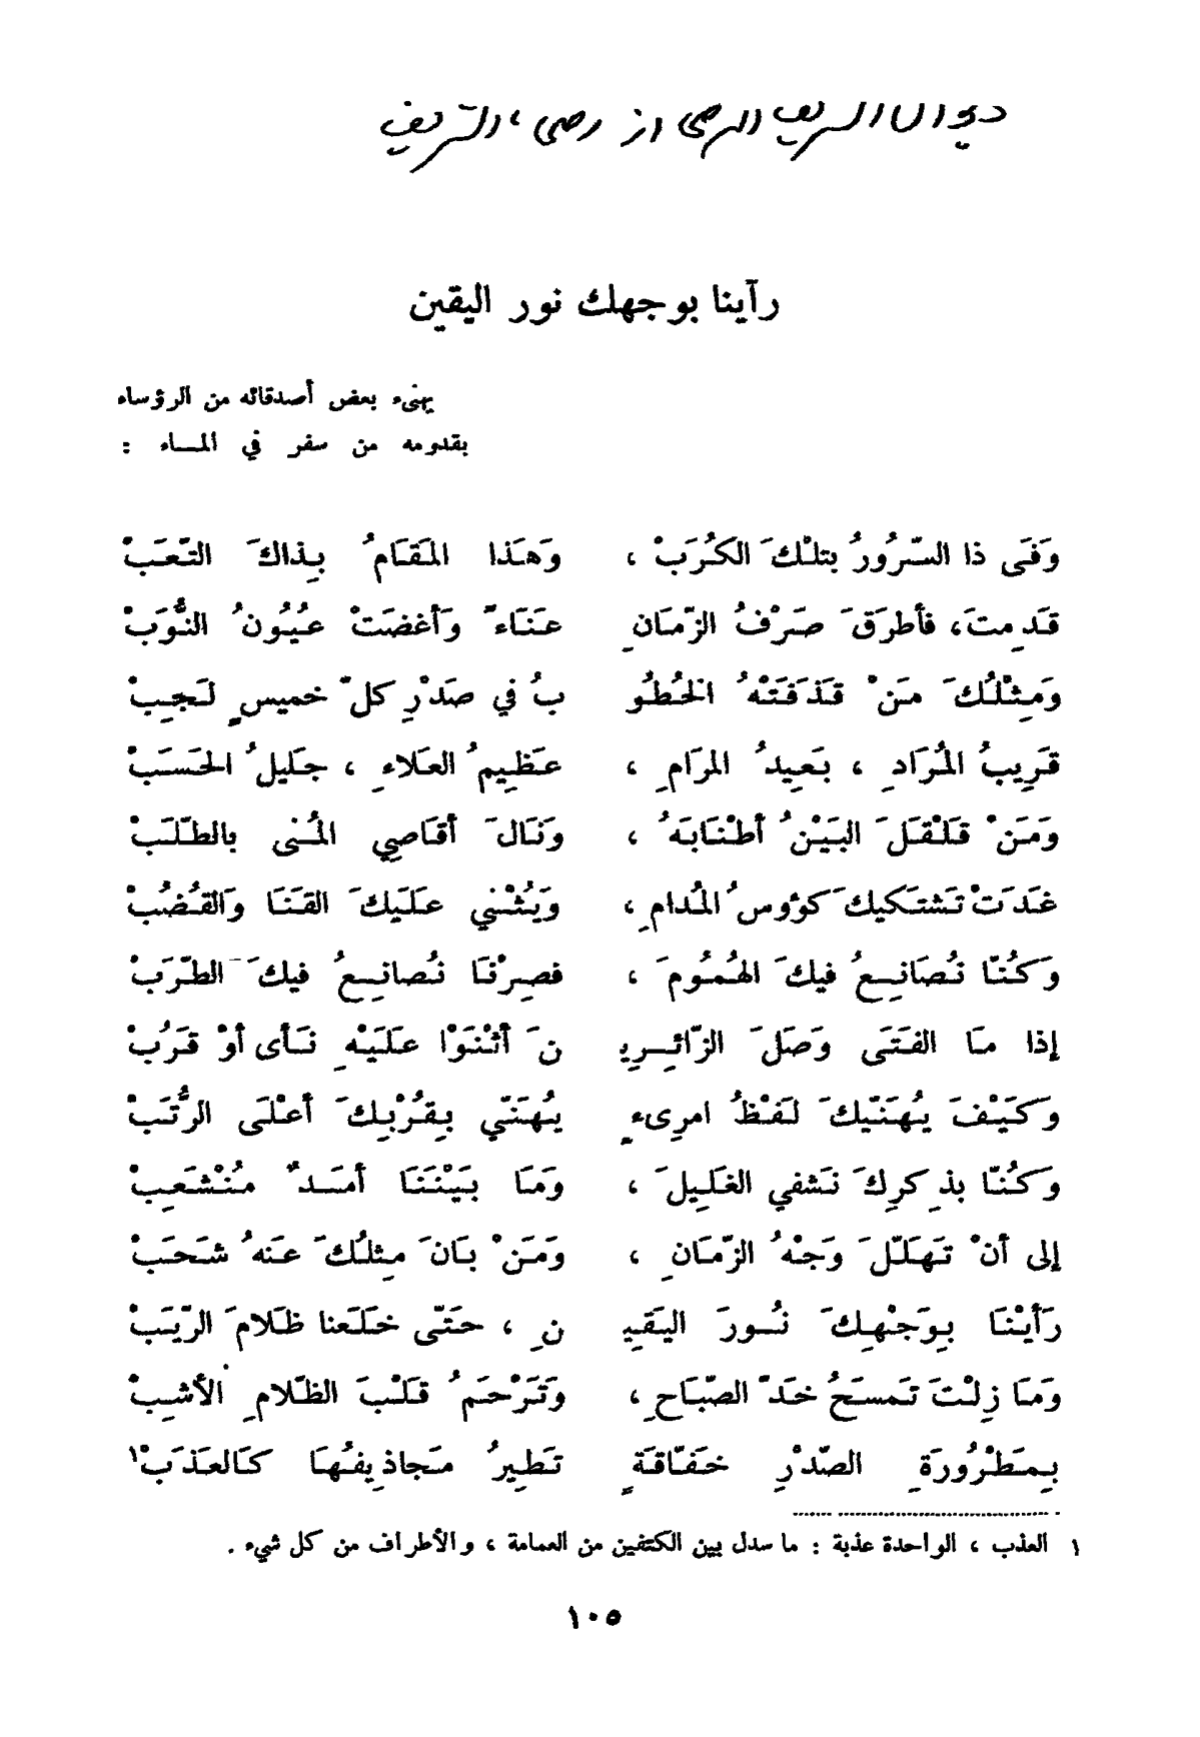 ديوان الشريف الرضي از رضي، الشريف
رآينا بوجهك نور اليقين
يهنيء بعض أصدقائه من الرؤساء
بقدومه من سفر في الماء :
وَفَى ذا السّرُورُ بتلْكَ الكُرَبْ ، وَهَذا المَقَامُ بِذاكَ التّعَبْ
قَدِمتَ، فأطرَقَ صَرْفُ الزّمَانِ عَنَاءً وَأغضَتْ عُيُونُ النُّوَبْ
وَمِثْلُكَ مَنْ قَذَفَتْهُ الخُطُو بُ في صَدْرِ كلّ خميسٍ لَجِبْ
قَرِيبُ المُرَادِ ، بَعِيدُ المرَامِ ، عَظِيمُ العَلاءِ ، جَليلُ الحَسَبْ
وَمَنْ قَلْقَلَ البَيْنُ أطْنَابَهُ ، وَنَالَ أقَاصِي المُنى بالطّلَبْ
غَدَتْ تَشتَكيكَ كؤوسُ المُدامِ ، وَيُثْني عَلَيكَ القَنَا وَالقُضُبْ
وَكُنّا نُصَانِعُ فيكَ الهُمُومَ ، فصِرْنَا نُصانِعُ فيكَ الطّرَبْ
إذا مَا الفَتَى وَصَلَ الزّائِرِي نَ أثْنَوْا عَلَيْهِ نَأى أوْ قَرُبْ
وَكَيْفَ يُهَنّيكَ لَفْظُ امرِىءٍ يُهَنّي بِقُرْبِكَ أعْلَى الرُّتَبْ
وَكُنّا بذِكرِكَ نَشفي الغَلِيلَ ، وَمَا بَيْنَنَا أمَدٌ مُنْشَعِبْ
إلى أنْ تَهَلّلَ وَجْهُ الزّمَانِ ، وَمَنْ بَانَ مِثلُكَ عَنهُ شَحَبْ
رَأيْنَا بِوَجْهِكَ نُورَ اليَقِي نِ ، حَتّى خَلَعنا ظَلامَ الرِّيَبْ
وَمَا زِلْتَ تَمسَحُ خَدّ الصّبَاحِ ، وَتَرْحَمُ قَلْبَ الظّلامِ الأشِبْ
بِمَطْرُورَةِ الصّدْرِ خَفّاقَةٍ تَطِيرُ مَجاذِيفُهَا كَالعَذَبْ١
١ العذب ، الواحدة عذبة : ما سدل بين الكتفين من العمامة ، والأطراف من كل شيء .
١٠٥